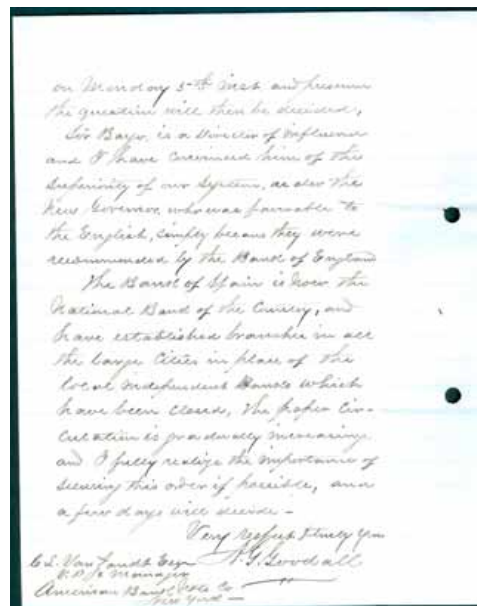 on Monday 5th inst. and presume
the question will then be decided,
Sor Bayo, is a Director of influence
and I have convinced him of the
Superiority of our System, as also the
New Governor, who was favorable to
the English, simply because they were
recommended by the Bank of England
The Bank of Spain is now the
National Bank of the Country, and
have established branches in all
the large Cities in place of the
local independent Banks which
have been closed, the paper Cir-
culation is gradually increasing
and I fully realize the importance of
securing this order if possible, and
a few days will decide —
Very respectfully Yrs
A. G. Goodall
C L Van Zandt Esqr
V. P. & Manager
American Bank Note Co
New York —